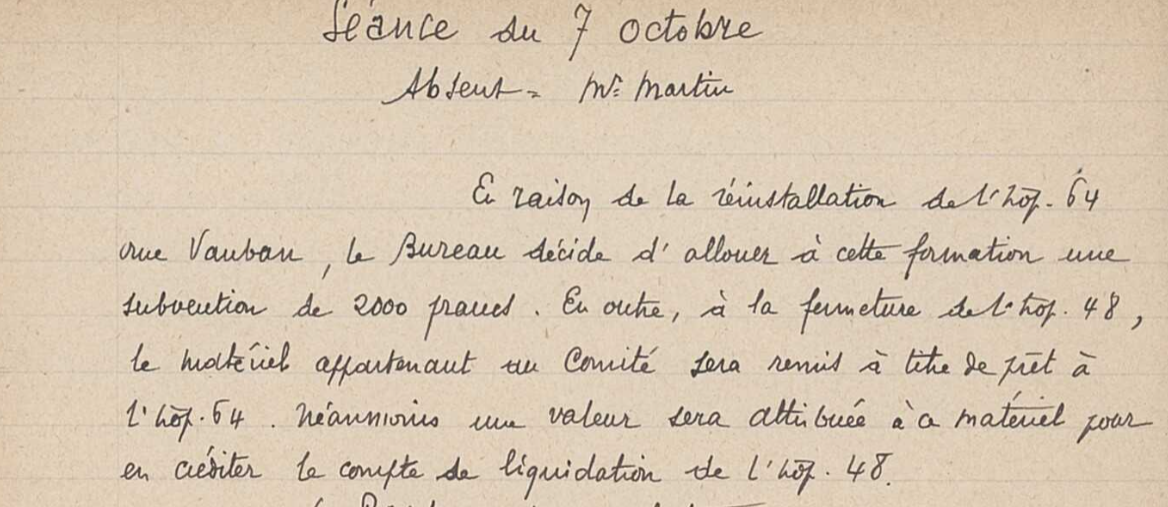 Séance du 7 octobre
Absent = Mr Martin
En raison de la réinstallation de l'hôp. 64
rue Vauban, le Bureau décide d'allouer à cette formation une
subvention de 2000 francs. En outre, à la fermeture de l'hôp. 48,
le matériel appartenant au Comité sera remis à titre de prêt à
l'hôp. 64. Néanmoins une valeur sera attribuée à ce matériel pour
en créditer le compte de liquidation de l'hôp. 48.